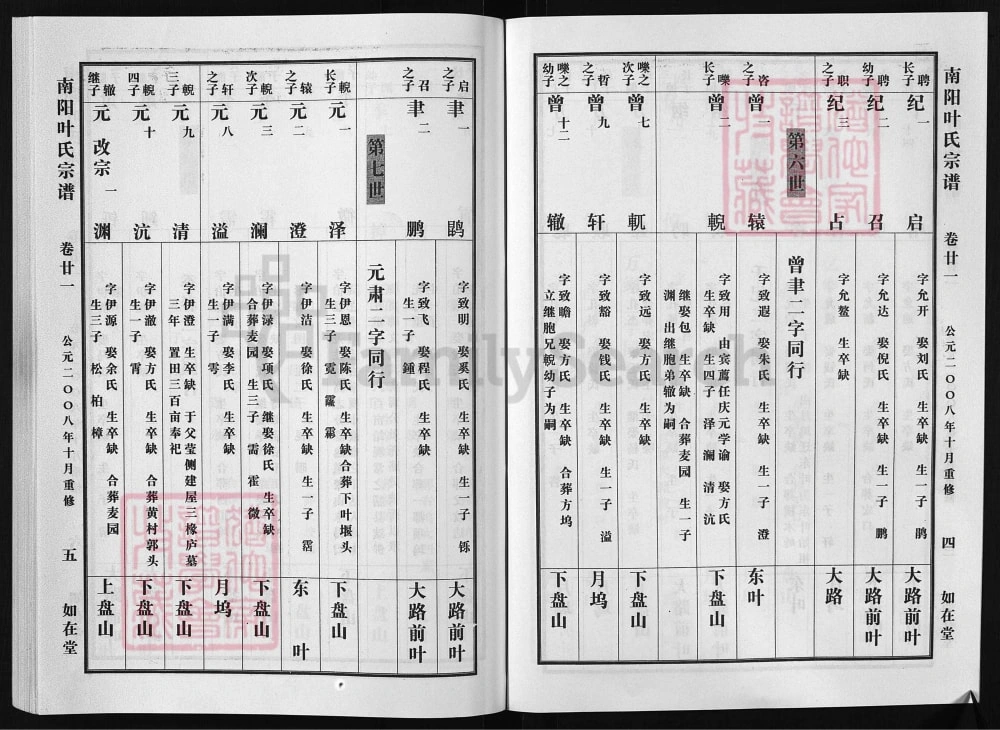 南阳叶氏宗谱
卷廿一
公元二〇〇八年十月重修
四
如在堂
聘长子
纪一
启
字允开 娶刘氏 生卒缺 生一子 鹃
大路前叶
聘幼子
纪二
召
字允达 娶倪氏 生卒缺 生一子 鹏
大路前叶
职之子
纪三
占
字允鳌 生卒缺
大路
第六世
曾聿二字同行
咨之子
曾一
辕
字致遐 娶朱氏 生卒缺 生一子 澄
东叶
嚛长子
曾二
輗
字致用 由宾薦任庆元学谕 娶方氏
生卒缺 生四子 泽 澜 清 沆
继娶包 生卒缺 合葬麦园 生一子
渊 出继胞弟辙为嗣
下盘山
嚛之次子
曾七
軏
字致远 娶方氏 生卒缺
下盘山
哲之子
曾九
轩
字致豁 娶钱氏 生卒缺 合葬方坞 生一子 溢
月坞
嚛之幼子
曾十二
辙
字致瞻 娶方氏 生卒缺
立继胞兄輗幼子为嗣
下盘山
启之子
聿一
鹍
字致明 娶奚氏 生卒缺 生一子 铄
大路前叶
召之子
聿二
鹏
字致飞 娶程氏 生卒缺
生一子 鍾
大路前叶
第七世
元肃二字同行
輗长子
元一
泽
字伊恩 娶陈氏 生卒缺合葬下叶堰头
生三子 霓 霾 霦
下盘山
辕之子
元二
澄
字伊洁 娶徐氏 生卒缺 生一子 霑
东叶
輗次子
元三
澜
字伊渌 娶项氏 继娶徐氏 生卒缺
合葬麦园 生三子 需 霍 微
下盘山
轩之子
元八
溢
字伊满 娶李氏 生卒缺
生一子 雩
月坞
輗三子
元九
清
字伊澄 生卒缺 于父莹侧建屋三椽庐墓
三年 置田三百亩奉祀
下盘山
輗四子
元十
沆
字伊澈 娶方氏 生卒缺 合葬黄村郭头
生一子 霄
下盘山
辙继子
元改宗一
渊
字伊源 娶余氏 生卒缺 合葬麦园
生三子 松 柏 樟
上盘山
南阳叶氏宗谱
卷廿一
公元二〇〇八年十月重修
五
如在堂
FamilySearch